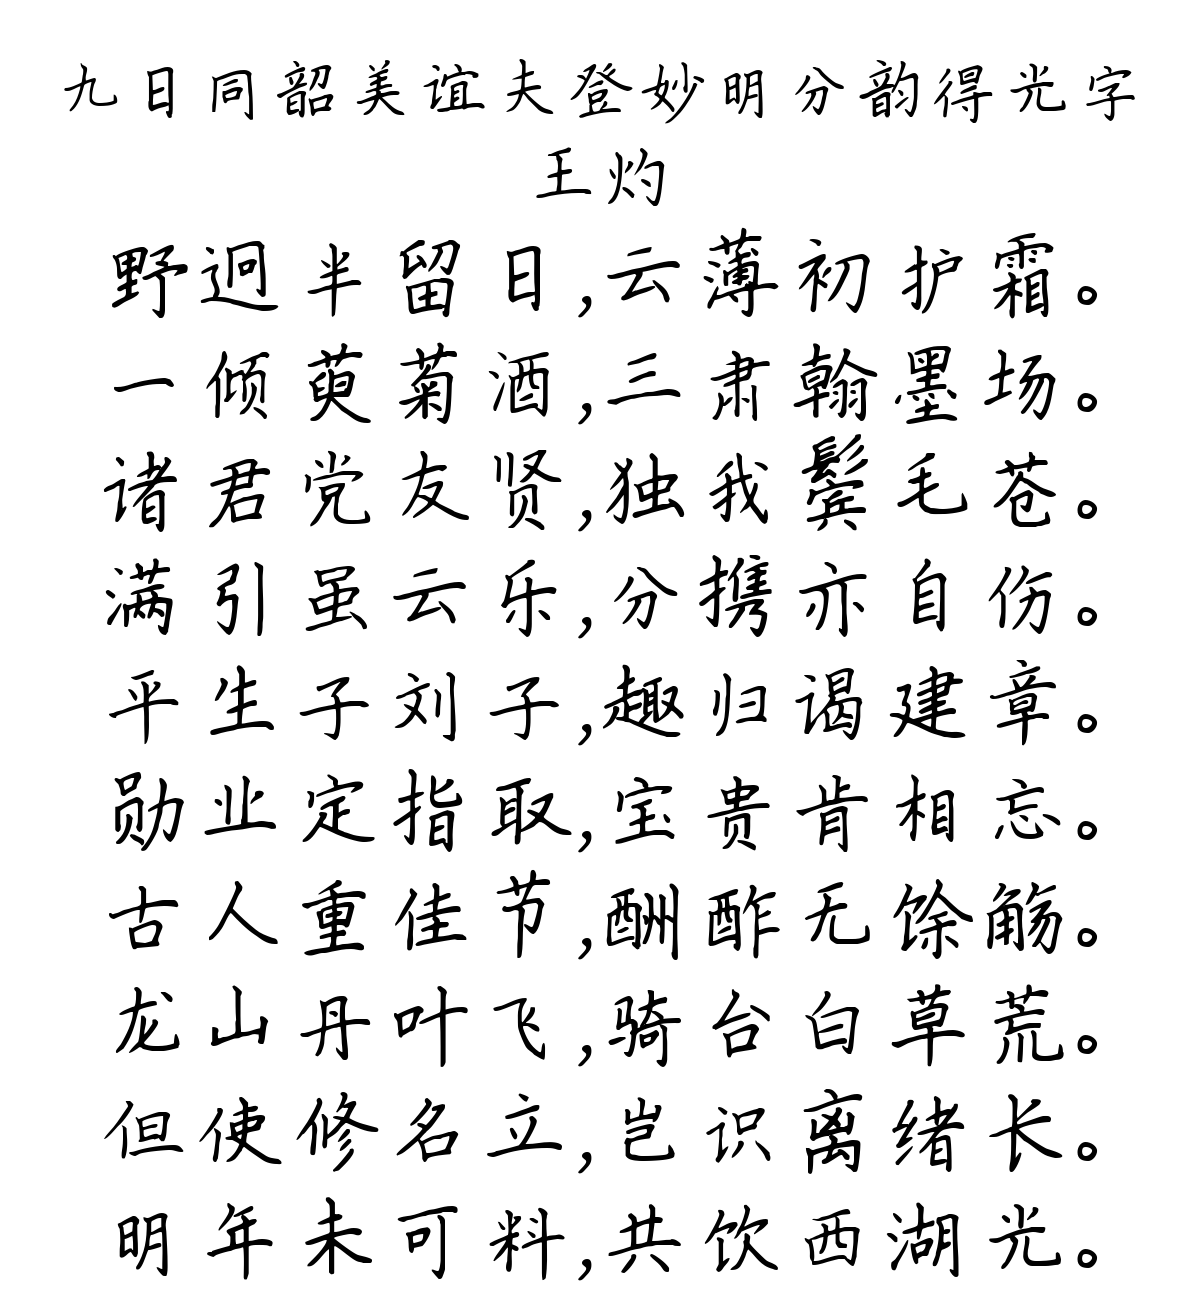 九日同韶美谊夫登妙明分韵得光字
王灼
野迥半留日,云薄初护霜。
一倾萸菊酒,三肃翰墨场。
诸君党友贤,独我鬓毛苍。
满引虽云乐,分携亦自伤。
平生子刘子,趣归谒建章。
勋业定指取,宝贵肯相忘。
古人重佳节,酬酢无馀觞。
龙山丹叶飞,骑台白草荒。
但使修名立,岂识离绪长。
明年未可料,共饮西湖光。